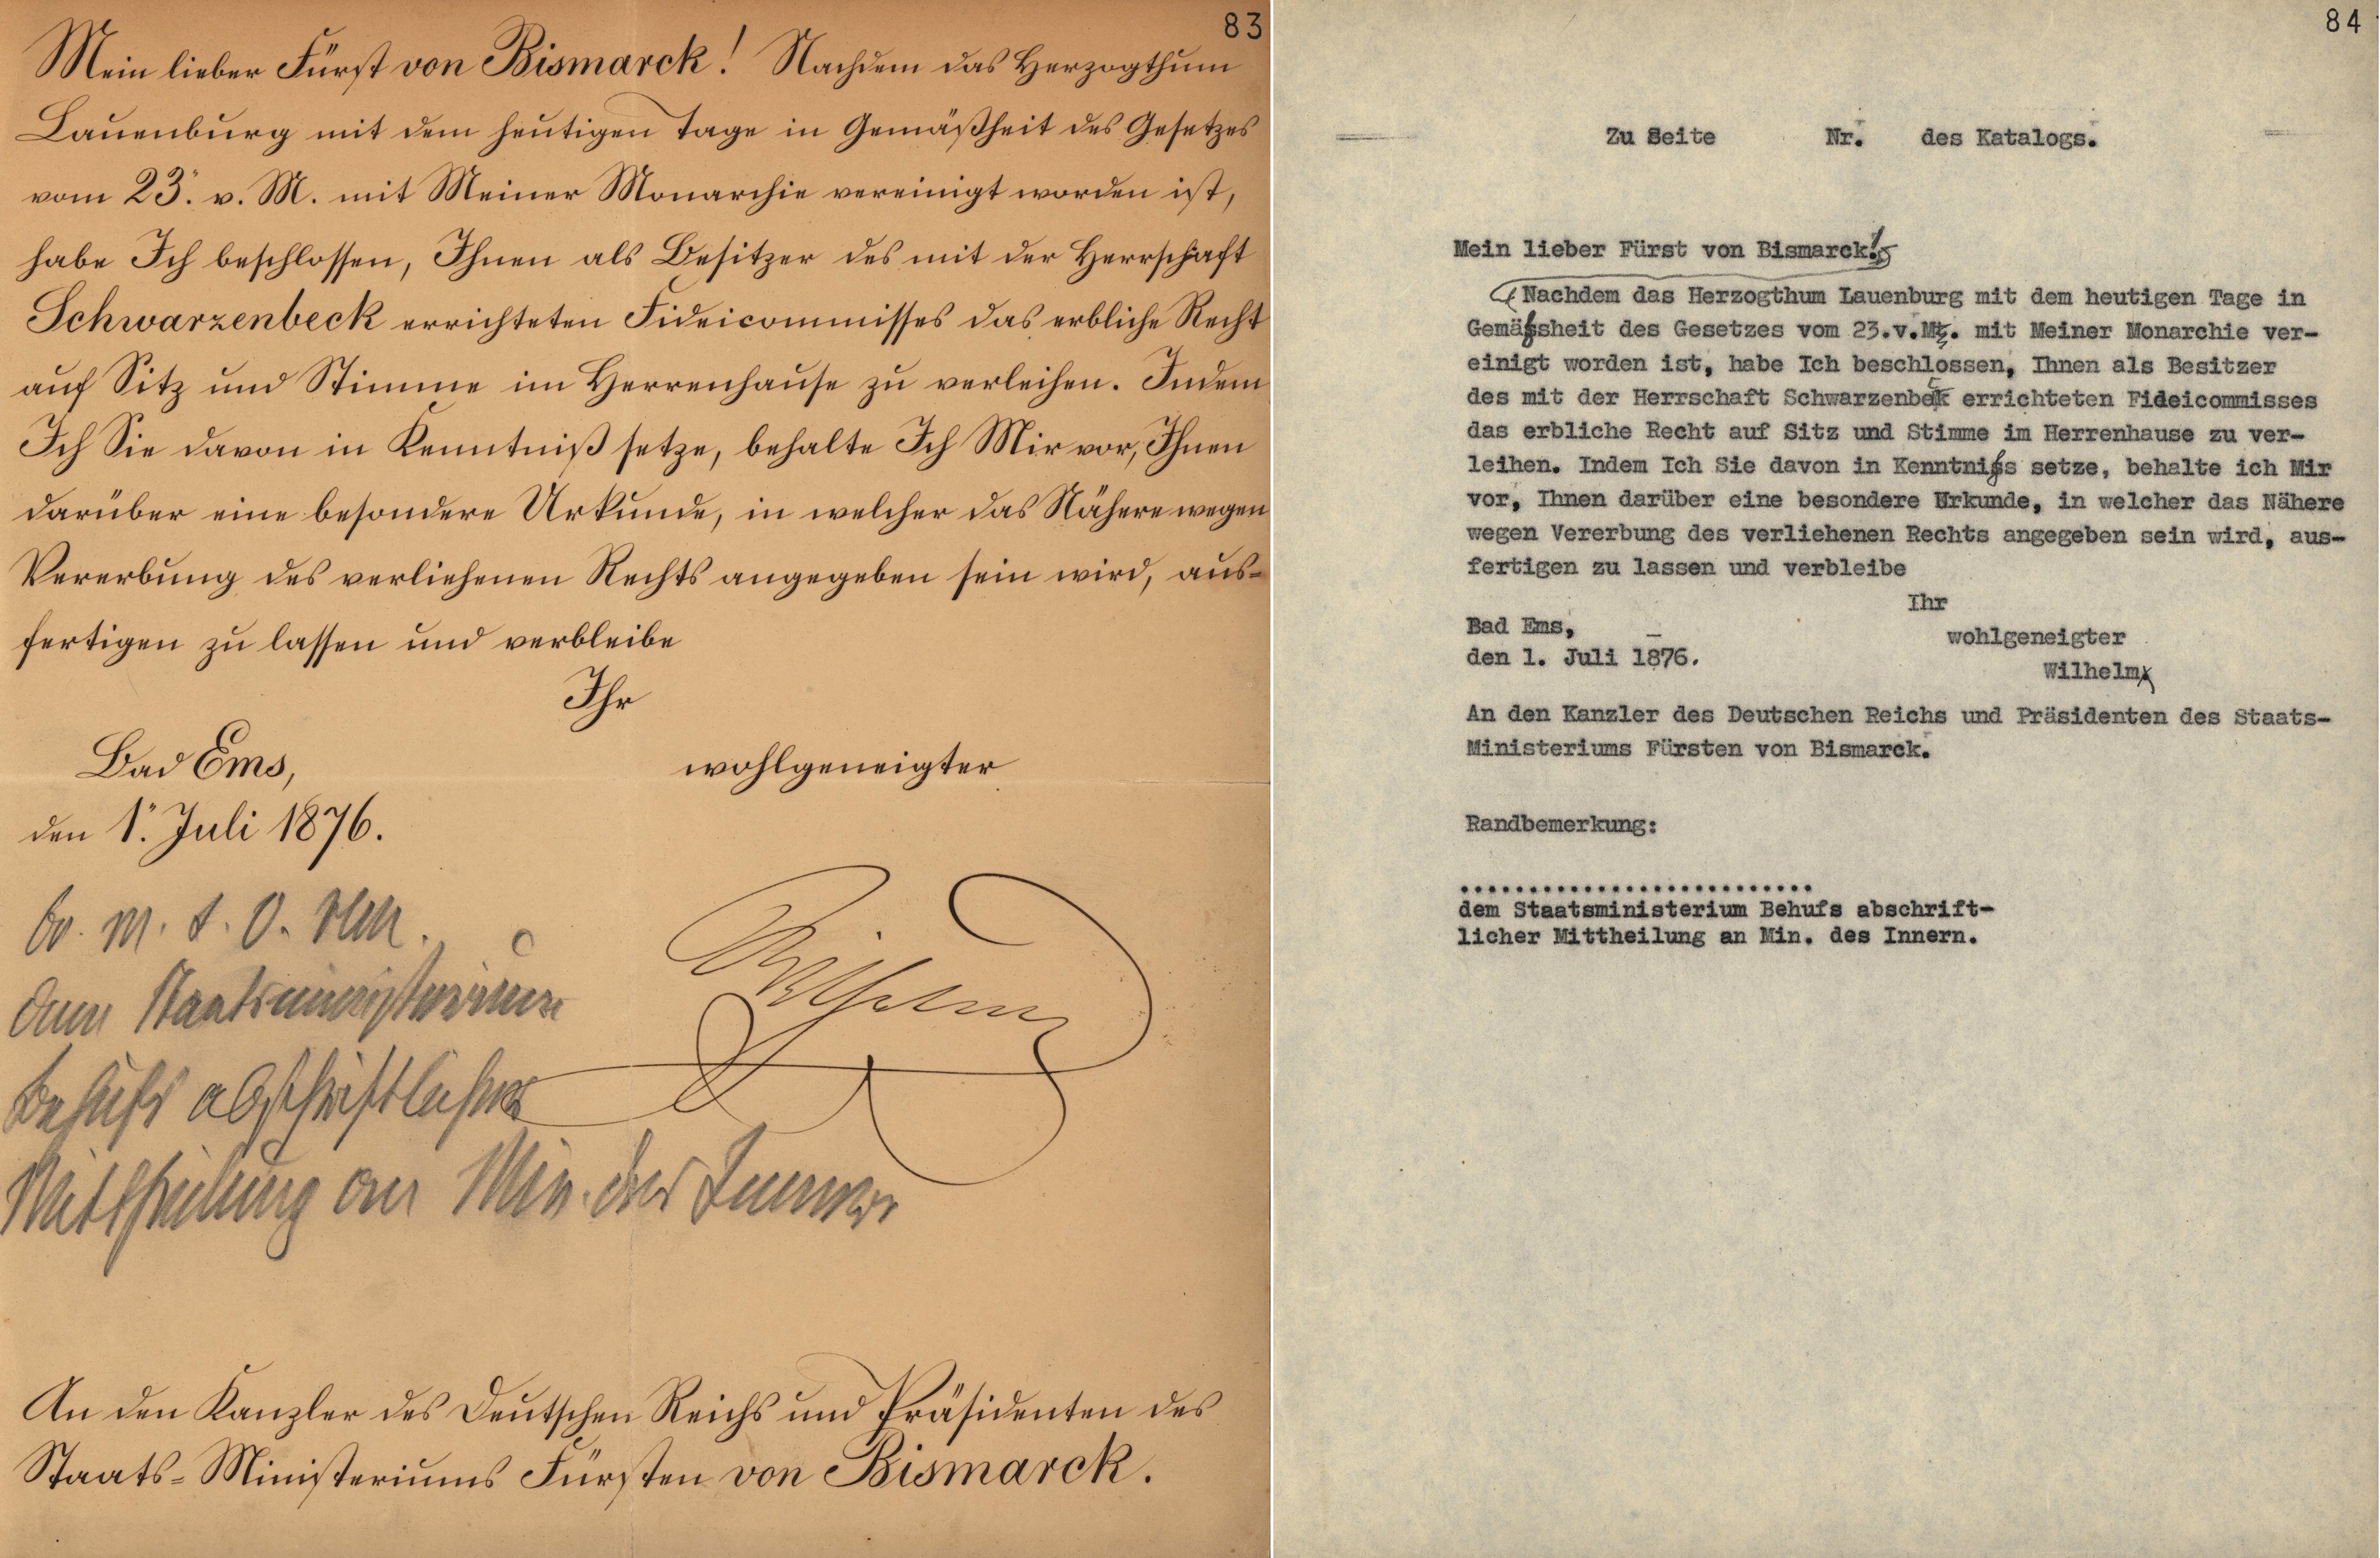 83
Mein lieber Fürst von Bismarck! Nachdem das Herzogthum
Lauenburg mit dem heutigen Tage in Gemäßheit des Gesetzes
vom 23. v. M. mit Meiner Monarchie vereinigt worden ist,
habe Ich beschlossen, Ihnen als Besitzer des mit der Herrschaft
Schwarzenbeck errichteten Fideicommisses das erbliche Recht
auf Sitz und Stimme im Herrenhause zu verleihen. Indem
Ich Sie davon in Kenntniß setze, behalte Ich Mir vor, Ihnen
darüber eine besondere Urkunde, in welcher das Nähere wegen
Vererbung des verliehenen Rechts angegeben sein wird, aus-
fertigen zu lassen und verbleibe
Ihr
wohlgeneigter
Bad Ems,
den 1. Juli 1876.
Wilhelm
dem Staatsministerium
Behufs abschriftlicher
Mittheilung an Min. des Innern
An den Kanzler des Deutschen Reichs und Präsidenten des
Staats-Ministeriums Fürsten von Bismarck.
84
Zu Seite Nr. des Katalogs.
Mein lieber Fürst von Bismarck!
Nachdem das Herzogthum Lauenburg mit dem heutigen Tage in
Gemässheit des Gesetzes vom 23.v.M. mit Meiner Monarchie ver-
einigt worden ist, habe Ich beschlossen, Ihnen als Besitzer
des mit der Herrschaft Schwarzenbeck errichteten Fideicommisses
das erbliche Recht auf Sitz und Stimme im Herrenhause zu ver-
leihen. Indem Ich Sie davon in Kenntniss setze, behalte ich Mir
vor, Ihnen darüber eine besondere Urkunde, in welcher das Nähere
wegen Vererbung des verliehenen Rechts angegeben sein wird, aus-
fertigen zu lassen und verbleibe
Ihr
wohlgeneigter
Wilhelm
Bad Ems,
den 1. Juli 1876.
An den Kanzler des Deutschen Reichs und Präsidenten des Staats-
Ministeriums Fürsten von Bismarck.
Randbemerkung:
...........................
dem Staatsministerium Behufs abschrift-
licher Mittheilung an Min. des Innern.